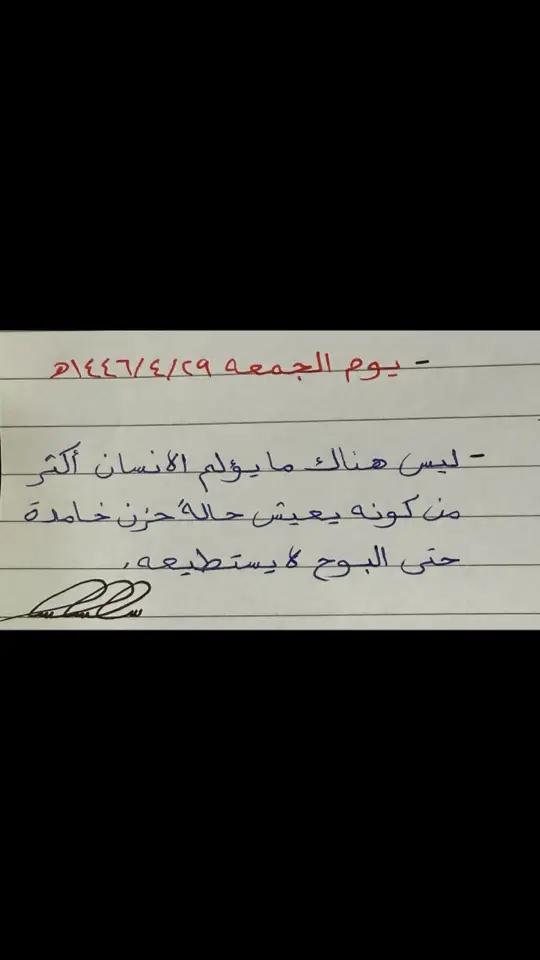 - يوم الجمعه ١٤٤٦/٤/٢٩هـ
- ليس هناك ما يؤلم الانسان أكثر
من كونه يعيش حالةً حزن خامدة
حتى البوح لا يستطيعه.